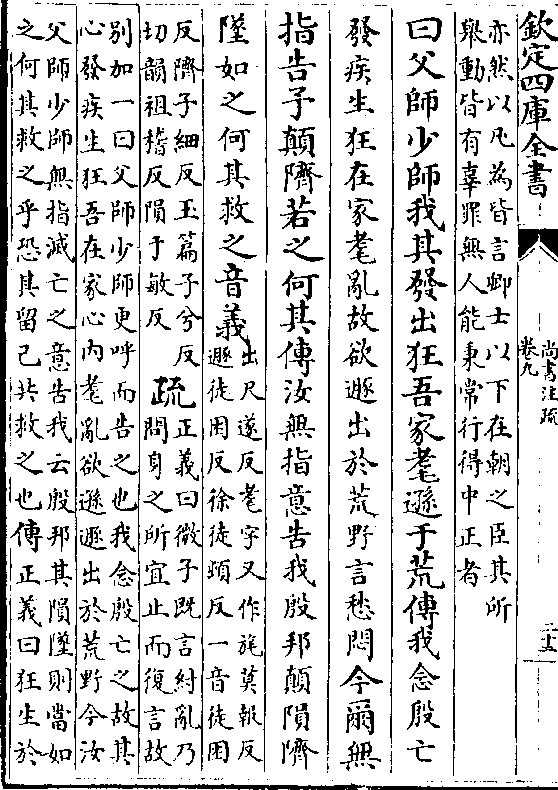 欽定四庫全書
尚書注疏
卷九
二十五
亦然以凡為皆言卿士以下在朝之臣其所
舉動皆有辜罪無人能秉常行得中正者
曰父師少師我其發出狂吾家耄遜于荒傳我念殷亡
發疾生狂在家耄亂故欲遯出於荒野言愁悶今爾無
指告予顛隮若之何其傳汝無指意告我殷邦顛隕隮
墜如之何其救之音義
出尺遂反耄字又作旄莫報反
遯徒困反徐徒頓反一音徒困
反隮子細反玉篇子兮反
切韻祖稽反隕于敏反
疏
正義曰微子既言紂亂乃
問身之所宜止而復言故
別加一曰父師少師更呼而告之也我念殷亡之故其
心發疾生狂吾在家心内耄亂欲遜遯出於荒野今汝
父師少師無指滅亡之意告我云殷邦其隕墜則當如
之何其救之乎恐其留己共救之也傳正義曰狂生於